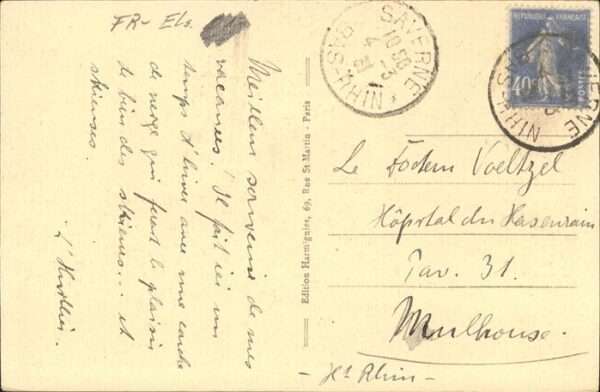 FR- Els.
Meilleurs souvenirs de mes
vacances. Il fait ici un
temps d'hiver avec une couche
de neige qui font le plaisir
de bien des skieurs... et
skieuses.
Edition Harmignies, 69, Rue St Martin - Paris
SAVERNE
BAS-RHIN
REPUBLIQUE FRANÇAISE
40c
POSTES
VERNE
S-RHIN
Le Docteur Voeltzel
Hôpital du Hasenrain
Pav. 31.
Mulhouse.
- Ht Rhin -